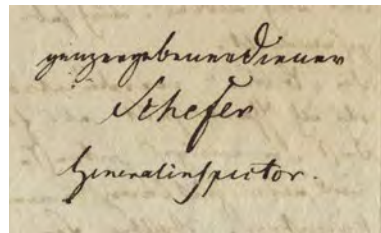 ganzergebener Diener
Schefer
Generalinspector.